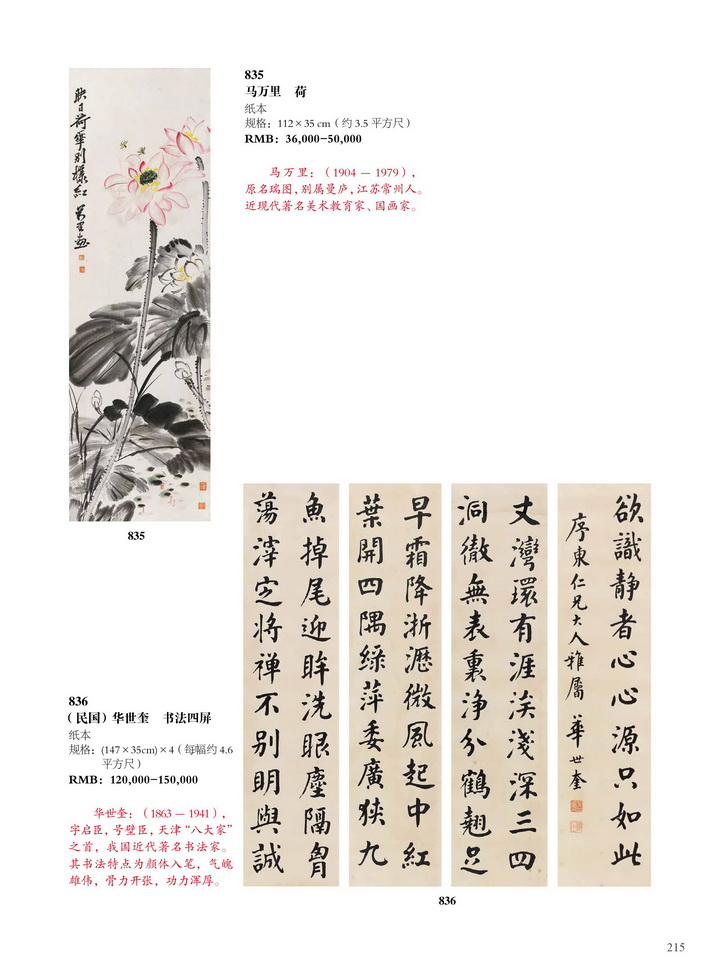 映日荷華别樣紅 萬里画
835
马万里 荷
纸本
规格：112×35 cm（约 3.5 平方尺）
RMB：36,000-50,000
马万里：（1904 — 1979），
原名瑞图，别属曼庐，江苏常州人。
近现代著名美术教育家、国画家。
835
836
（民国）华世奎 书法四屏
纸本
规格：(147×35cm)×4（每幅约 4.6
平方尺）
RMB：120,000-150,000
华世奎：（1863 — 1941），
字启臣，号璧臣，天津“八大家”
之首，我国近代著名书法家。
其书法特点为颜体入笔，气魄
雄伟，骨力开张，功力浑厚。
魚掉尾迎眸洗眼塵隔胷
蕩滓定将禅不别明與誠
早霜降浙瀝微風起中紅
葉開四隅緑萍委廣狹九
丈灣環有涯涘淺深三四
洞徹無表裏浄分鶴翹足
欲識静者心心源只如此
序東仁兄大人雅屬 華世奎
836
215